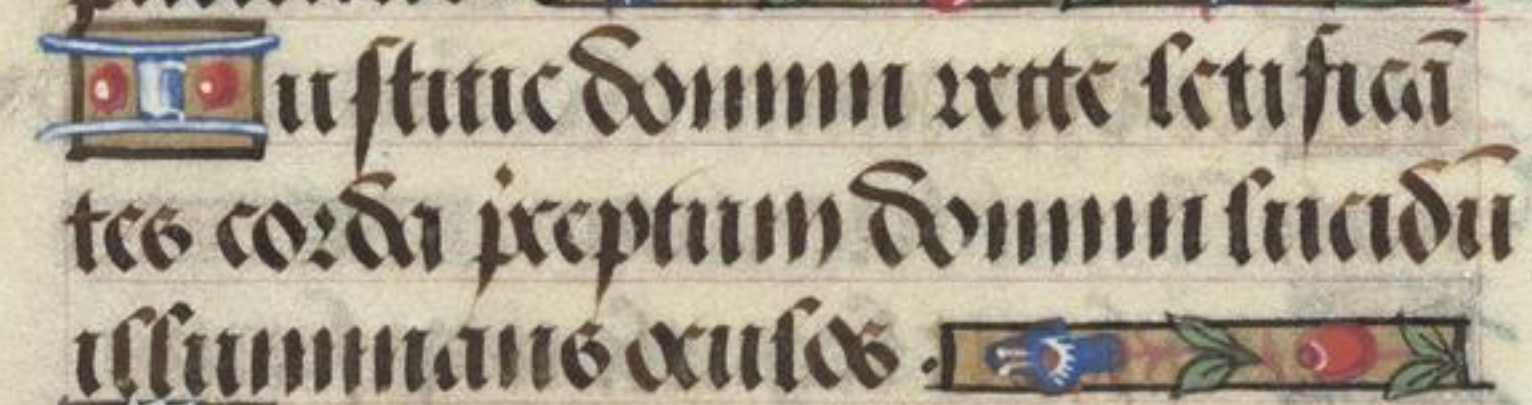 Iustitie domini recte letificā
tes corda preceptum domini lucidū
illuminans oculos .